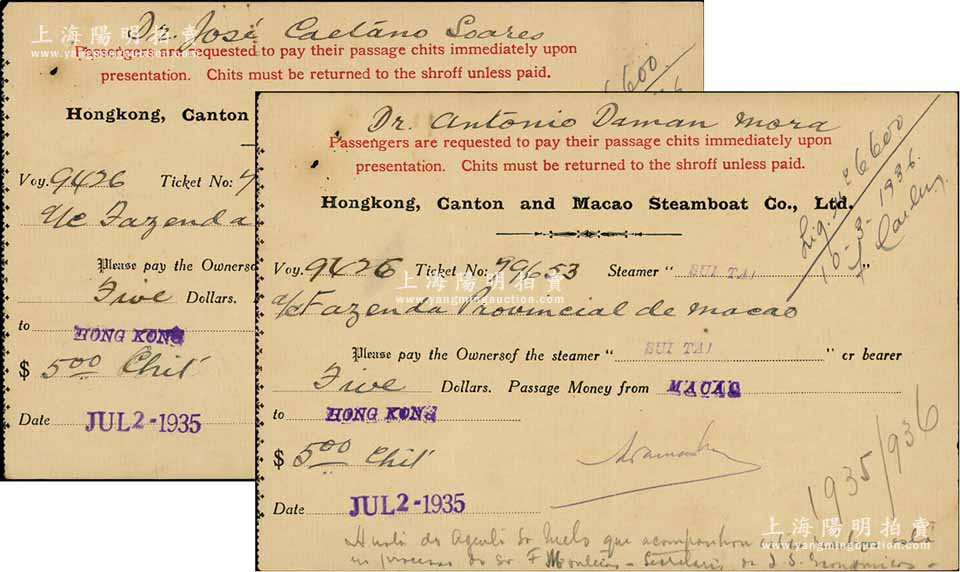 上海陽明拍賣
www.yangmingauction.com
Dr. José Caetano Soares
Passengers are requested to pay their passage chits immediately upon
presentation. Chits must be returned to the shroff unless paid.
Hongkong, Canton
Voy. 9426 Ticket No:
a/c Fazenda
Please pay the Owners of
Five Dollars.
to HONG KONG
$ 5.00 Chit
Date JUL 2-1935
Dr. António Daman Mora
Passengers are requested to pay their passage chits immediately upon
presentation. Chits must be returned to the shroff unless paid.
Hongkong, Canton and Macao Steamboat Co., Ltd.
Voy. 9426 Ticket No: 79653 Steamer "SUI TAI"
a/c Fazenda Provincial de Macao
Please pay the Ownersof the steamer "SUI TAI" or bearer
Five Dollars. Passage Money from MACAO
to HONG KONG
$ 5.00 Chit
Date JUL 2-1935
6600
1935/936
上海陽明拍賣
www.yangmingauction.com
上海陽明拍賣
www.yangmingauction.com